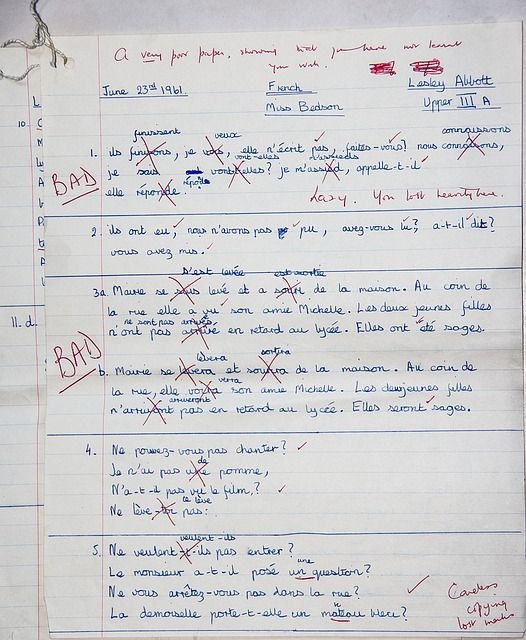 A very poor paper, showing that you have not learnt
your work.
June 23rd 1961. French Lesley Abbott
Miss Bedson Upper III A
finissent veux connaissons
1. ils finirons, je vous, elle n'écrit pas, faites-vous! nous connaisons,
vont-elles m'assieds
je sais vont-elles? je m'assied, appelle-t-il
BAD
répond
elle réponde.
Lazy. You lost heavily here.
2. ils ont eu, nous n'avons pas pu, avez-vous lu? a-t-il dit?
vous avez mis.
s'est levée est sortie
3a. Marie se levé et a de la maison. Au coin de
la rue elle a vu son amie Michelle. Les deux jeunes filles
ne sont pas arrivés
n'ont pas arrivé en retard au lycée. Elles ont été sages.
BAD
lèvera sortira
b. Marie se levera et de la maison. Au coin de
verra
la rue, elle son amie Michelle. Les deux jeunes filles
arriveront
n'arriveront pas en retard au lycée. Elles seront sages.
4. Ne pouvez-vous pas chanter?
de
Je n'ai pas une pomme,
N'a-t-il pas vu le film,?
te lève
Ne lève-toi pas:
veulent-ils
5. Ne veulent-t-ils pas entrer?
une
Le monsieur a-t-il posé un question?
Ne vous arrêtez-vous pas dans la rue?
La demoiselle porte-t-elle un mateau bleu?
Careless
copying
lost marks
10.
11. d.